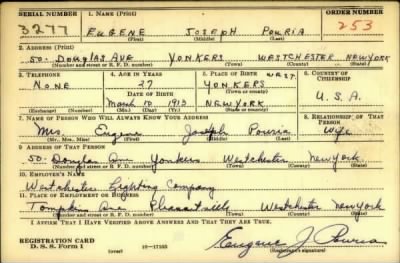 SERIAL NUMBER 1. NAME (Print) ORDER NUMBER
3277 EUGENE JOSEPH POURIA 253
(First) (Middle) (Last)
2. ADDRESS (Print)
50 - DOUGLAS AVE YONKERS WESTCHESTER NEW YORK
(Number and street or R. F. D. number) (Town) (County) (State)
3. TELEPHONE 4. AGE IN YEARS 5. PLACE OF BIRTH 6. COUNTRY OF CITIZENSHIP
NONE 27 YONKERS
DATE OF BIRTH (Town or county)
March 10 1913 NEW YORK U.S.A.
(Exchange) (Number) (Mo.) (Day) (Yr.) (State or country)
7. NAME OF PERSON WHO WILL ALWAYS KNOW YOUR ADDRESS 8. RELATIONSHIP OF THAT PERSON
Mrs. Eugene Joseph Pouria Wife
(Mr., Mrs., Miss) (First) (Middle) (Last)
9. ADDRESS OF THAT PERSON
50 - Douglas Ave Yonkers Westchester New York
(Number and street or R. F. D. number) (Town) (County) (State)
10. EMPLOYER'S NAME
Westchester Lighting Company
11. PLACE OF EMPLOYMENT OR BUSINESS
Tompkins Ave Pleasantville Westchester New York
(Number and street or R. F. D. number) (Town) (County) (State)
I AFFIRM THAT I HAVE VERIFIED ABOVE ANSWERS AND THAT THEY ARE TRUE.
REGISTRATION CARD
D. S. S. Form 1 (over) 16-17105 Eugene J. Pouria
(Registrant's signature)